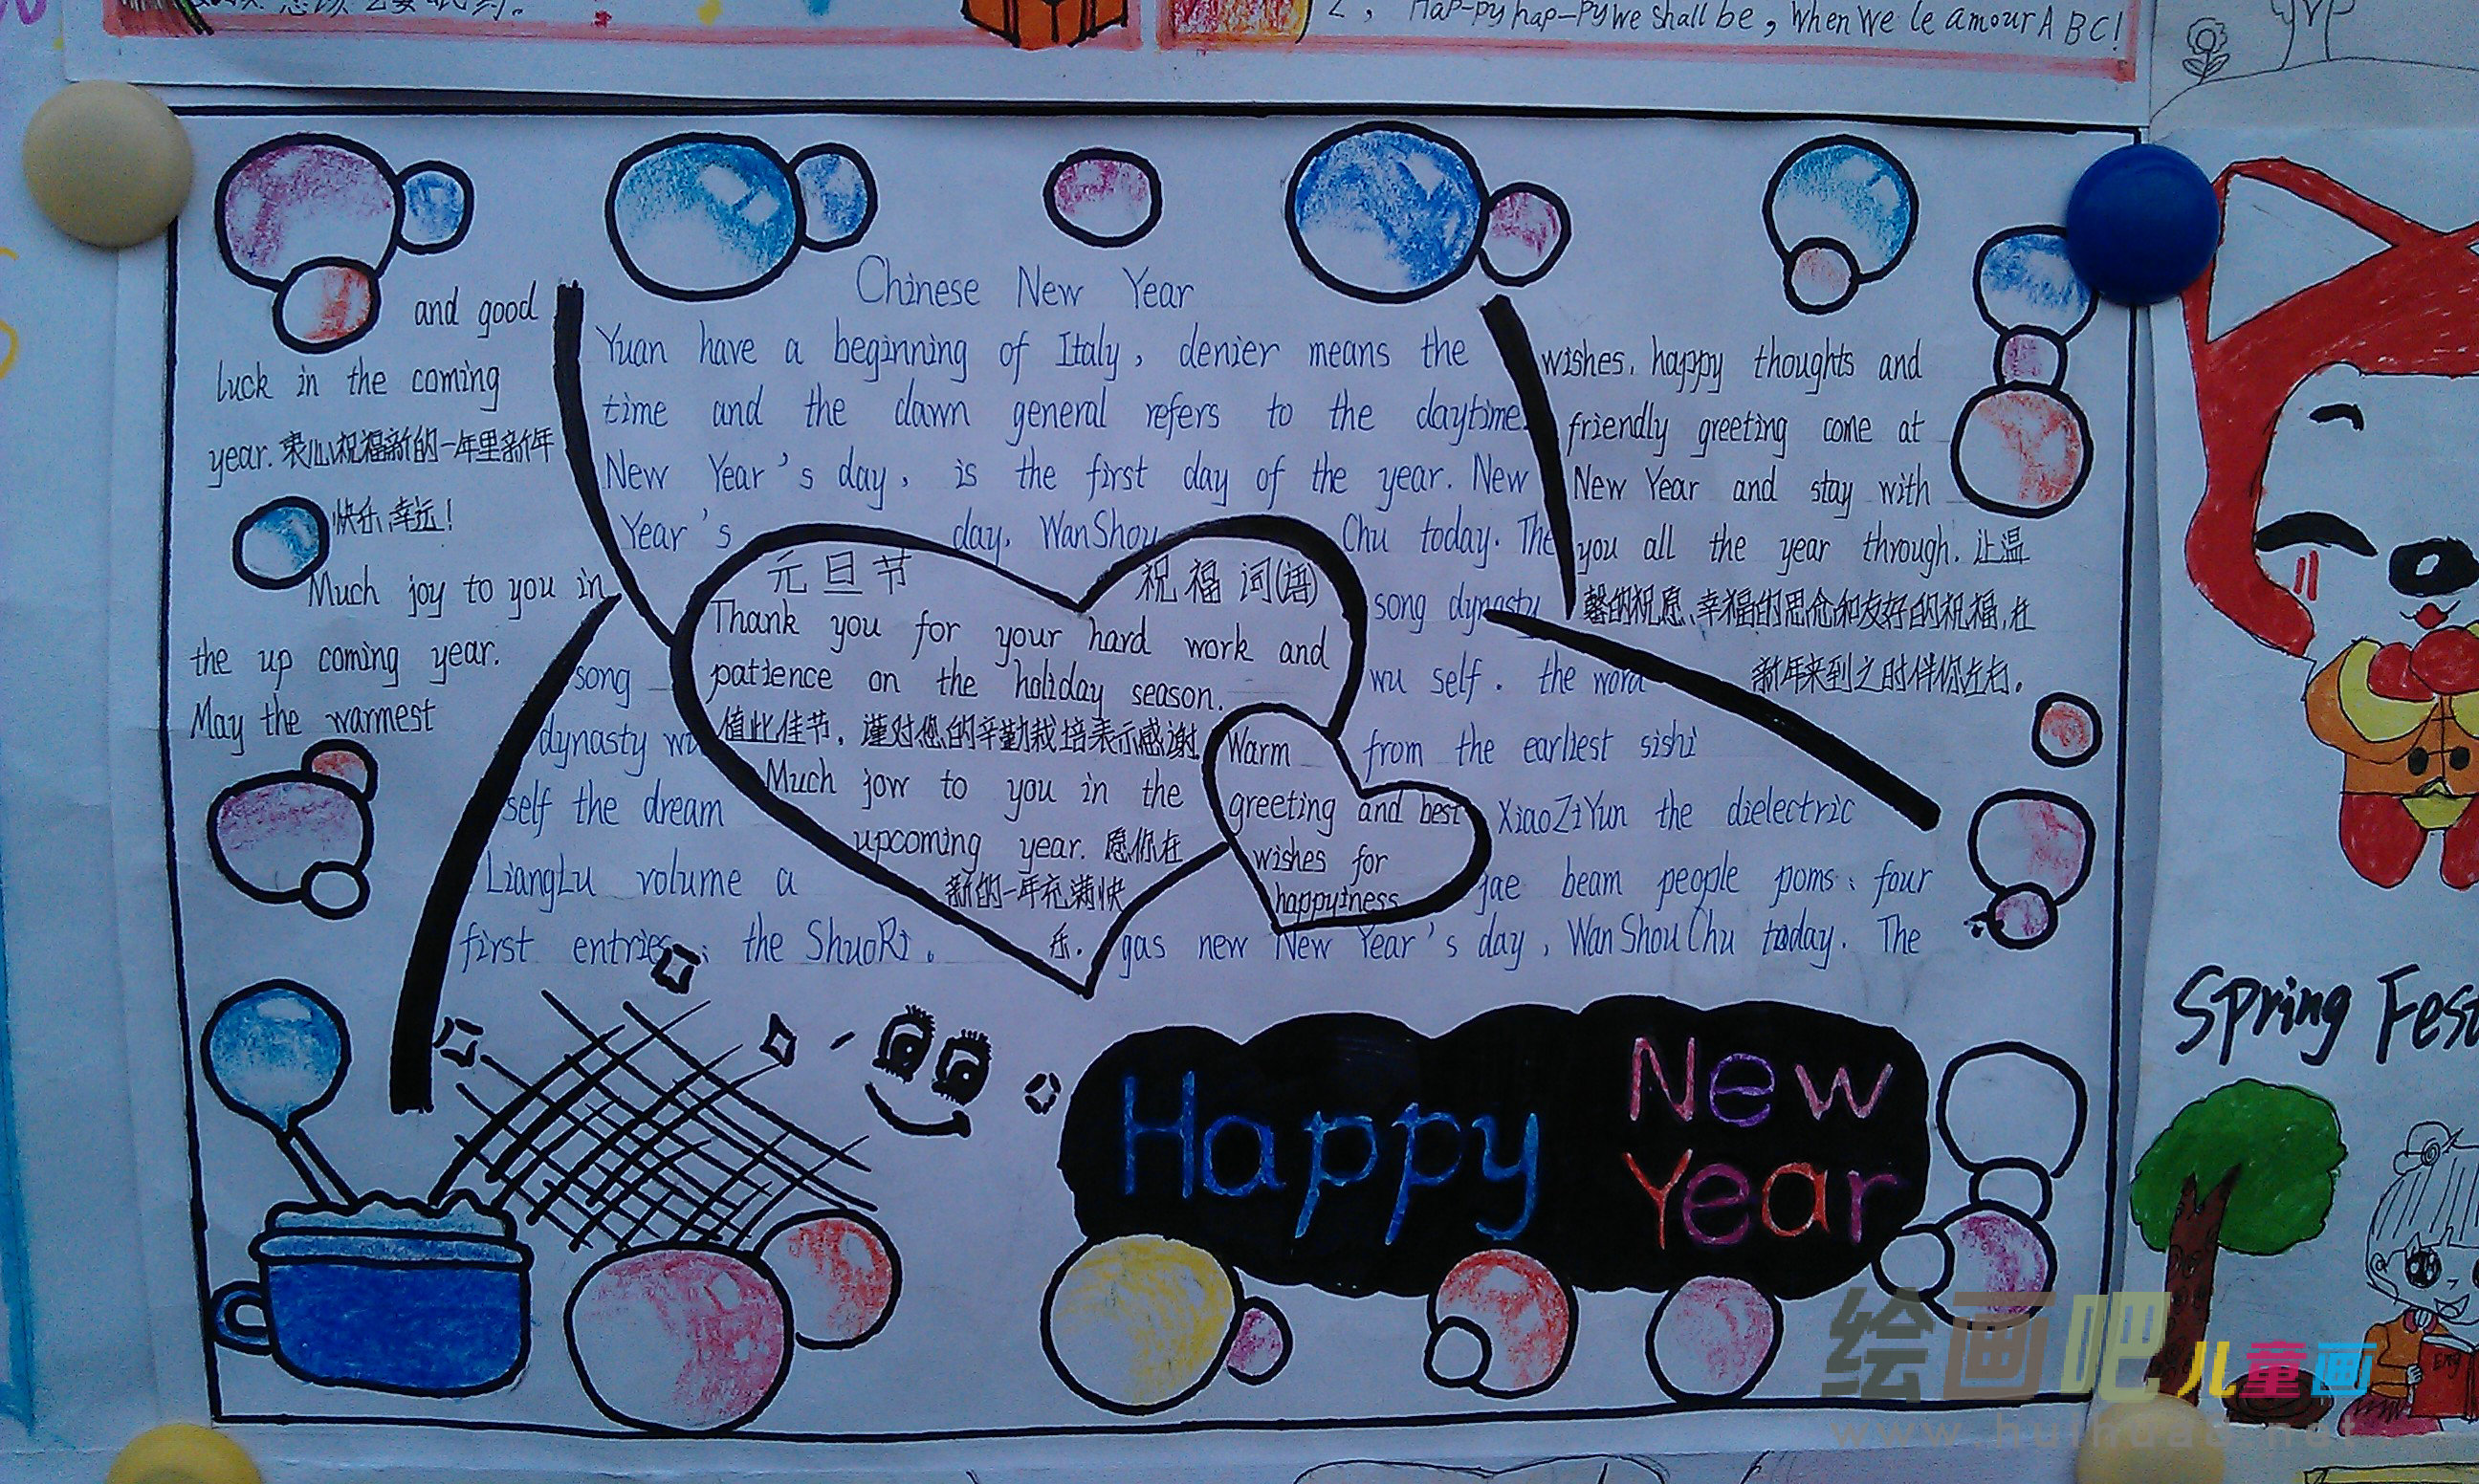 2, Hap-py hap-py we shall be, when we le amour A B C!
Chinese New Year
and good
luck in the coming
year. 衷心祝福新的一年里新年
快乐、幸运!
Much joy to you in
the up coming year.
May the warmest
Yuan have a beginning of Italy, denier means the
time and the dawn general refers to the daytime.
New Year's day, is the first day of the year. New
Year's day, WanShou Chu today. The
song dynasty
song wu self. the word
dynasty wu from the earliest sishi
self the dream XiaoZiYun the dielectric
LiangLu volume a jae beam people poms: four
first entries: the ShuoRi. gas new New Year's day, WanShouChu today. The
元旦节 祝福词(语)
Thank you for your hard work and
patience on the holiday season.
值此佳节, 谨对您的辛勤栽培表示感谢
Much jow to you in the
upcoming year. 愿你在
新的一年充满快
乐.
Warm
greeting and best
wishes for
happyiness
wishes, happy thoughts and
friendly greeting come at
New Year and stay with
you all the year through. 让温
馨的祝愿、幸福的思念和友好的祝福,在
新年来到之时伴你左右。
Happy New
Year
Spring Fest
绘画吧儿童画